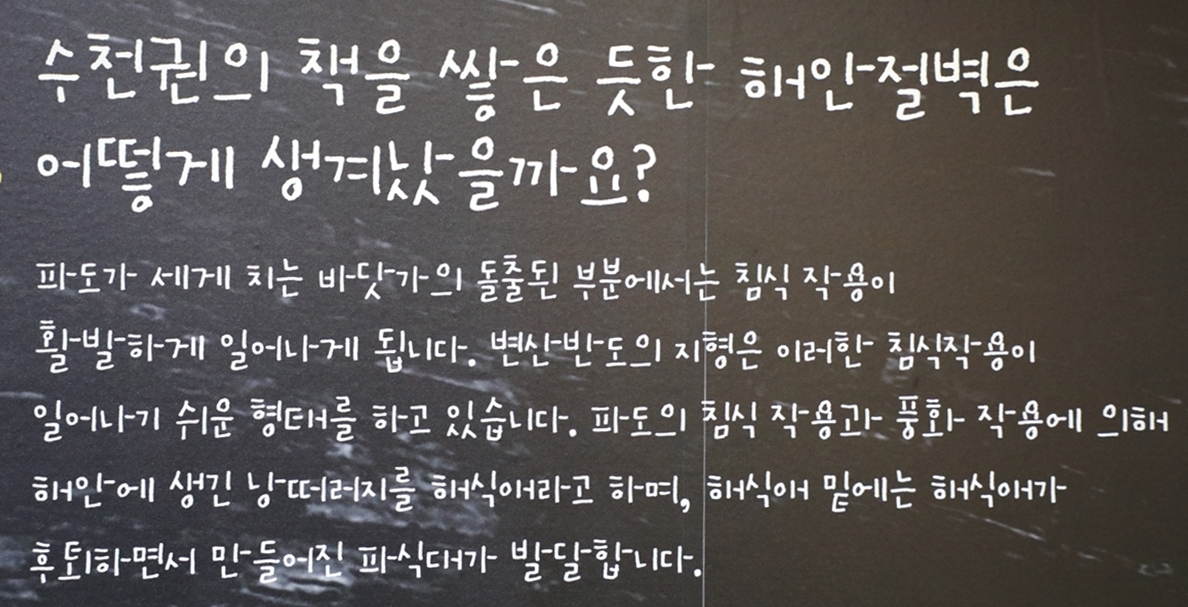 수천권의 책을 쌓은 듯한 해안절벽은
어떻게 생겨났을까요?
파도가 세게 치는 바닷가의 돌출된 부분에서는 침식 작용이
활발하게 일어나게 됩니다. 변산반도의 지형은 이러한 침식작용이
일어나기 쉬운 형태를 하고 있습니다. 파도의 침식 작용과 풍화 작용에 의해
해안에 생긴 낭떠러지를 해식애라고 하며, 해식애 밑에는 해식애가
후퇴하면서 만들어진 파식대가 발달합니다.